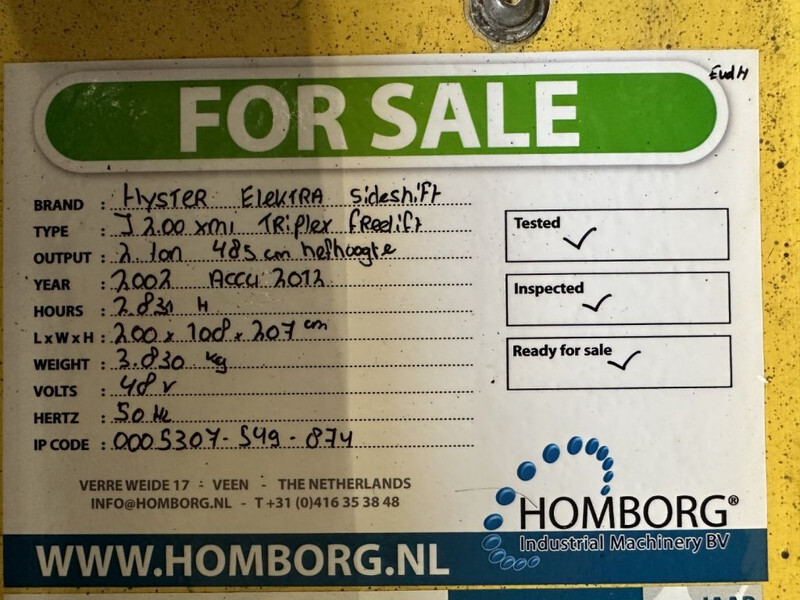 EvdH
FOR SALE
BRAND : HYSTER ElEKTRA Sideshift
TYPE : J 2.00 xmi TRiplex freelift
OUTPUT : 2.ton 485 cm hefhoogte
YEAR : 2002 ACCU 2012
HOURS : 2.831 H
L x W x H : 200 x 108 x 207 cm
WEIGHT : 3.830 kg
VOLTS : 48 v
HERTZ : 50 Hz
IP CODE : 0005307-549-874
Tested ✓
Inspected ✓
Ready for sale ✓
VERRE WEIDE 17 - VEEN - THE NETHERLANDS
INFO@HOMBORG.NL - T +31 (0)416 35 38 48
HOMBORG®
Industrial Machinery BV
WWW.HOMBORG.NL
JAAR